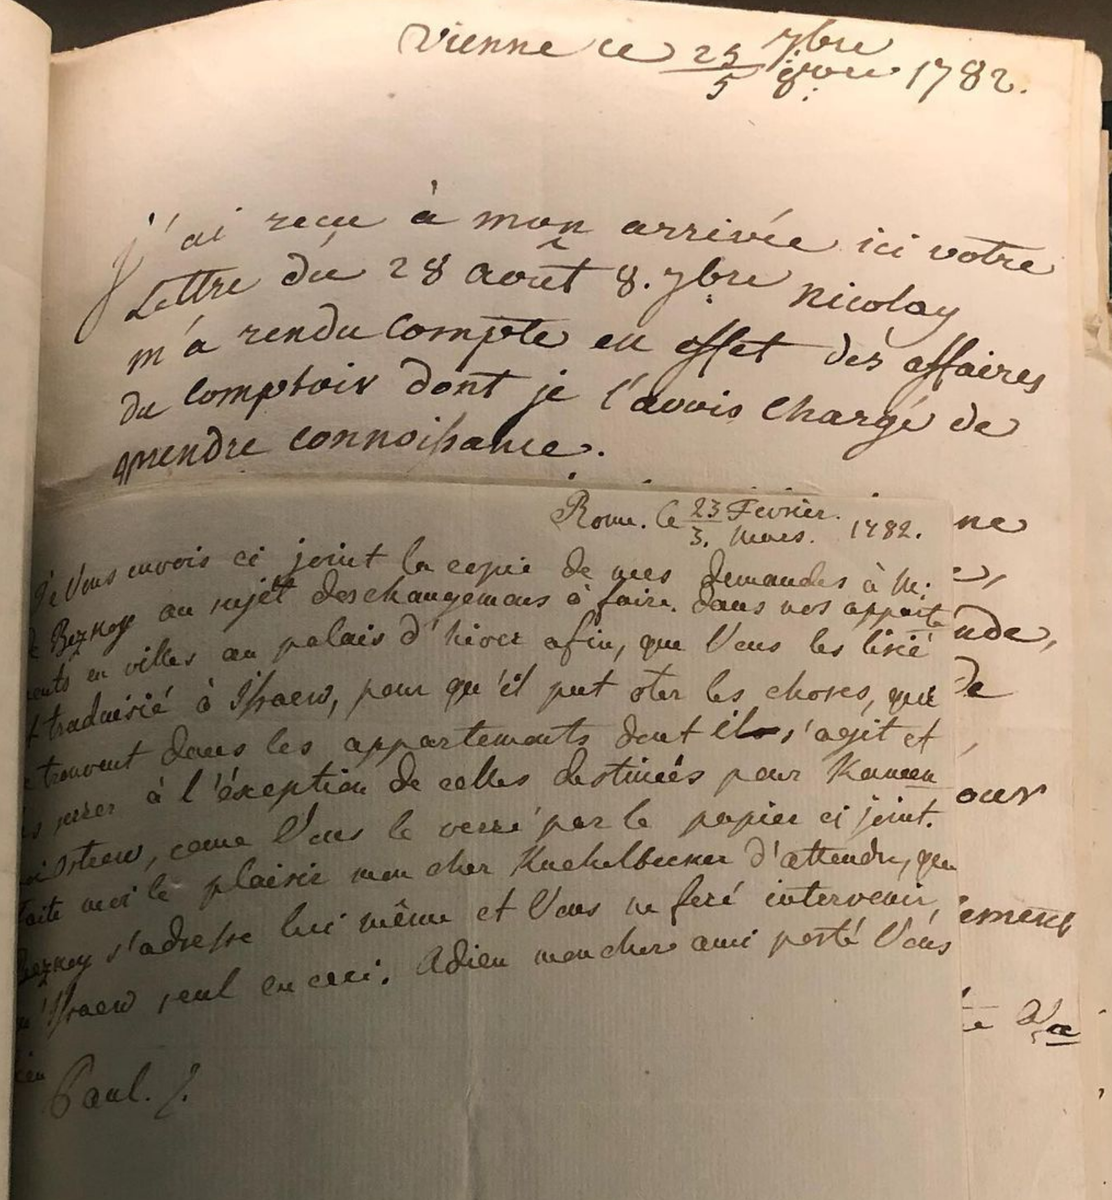 Vienne ce 25 7bre
5 8bre 1782.
j'ai recu à mon arrivée ici votre
Lettre du 28 août 8. 7bre Nicolay
m'a rendu compte en effet des affaires
du comptoir dont je l'avois chargé de
prendre connoissance.
Rome. le 23 Fevrier. 1782.
3. Mars.
ne
Je Vous envois ci joint la copie de mes demandes à M:
e,
de Bezkoy au sujet des changemens à faire. dans nos apparte
nde,
ments en villes au palais d'hiver afin, que Vous les lisié
et traduisié à Ssaew, pour qu'il put oter les choses, qui
de
trouvent dans les appartements dont il s'agit et
serer à l'éxception de celles destineés pour Kamen
our
oi Ostrow, come Vous le verré par le papier ci joint.
faite moi le plaisir mon cher Kuchelbecker d'attendre, que
Bezkoy s'adresse lui même et Vous ne feré intervenir
ement
qu'Issaew seul en ceci. Adieu mon cher ami porté Vous
bien
Paul. /.